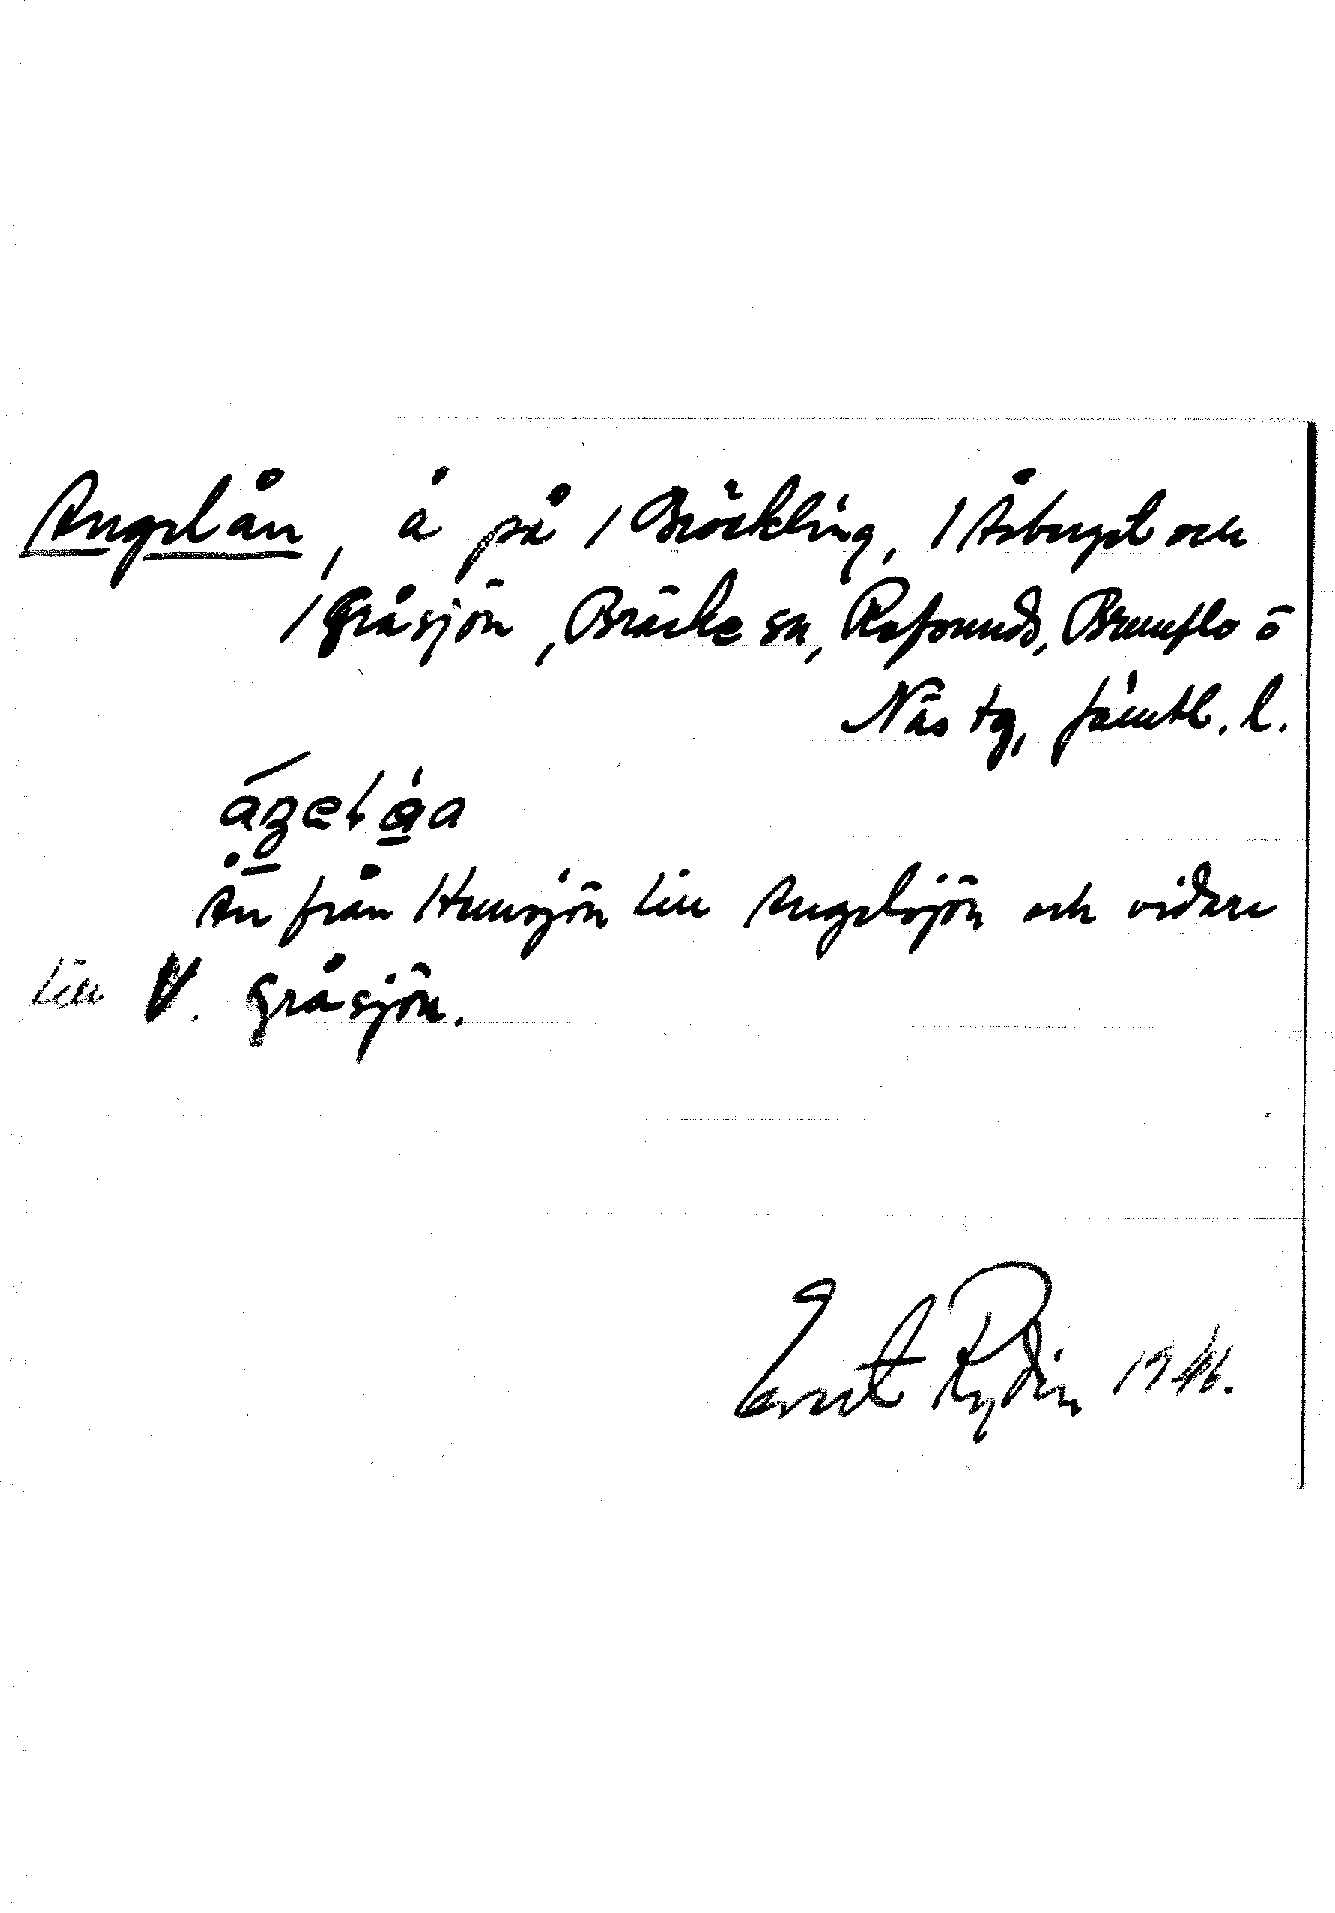 Angelån, å på / Bräckling, / Åsberget och
/ Gråsjön, Bräcke sn, Refsunds, Brunflo o
Näs tg, Jämtl. l.
Ån från Hunsjön till Angelsjön och vidare
till V. Gråsjön.
Ernst Rydin 1946.